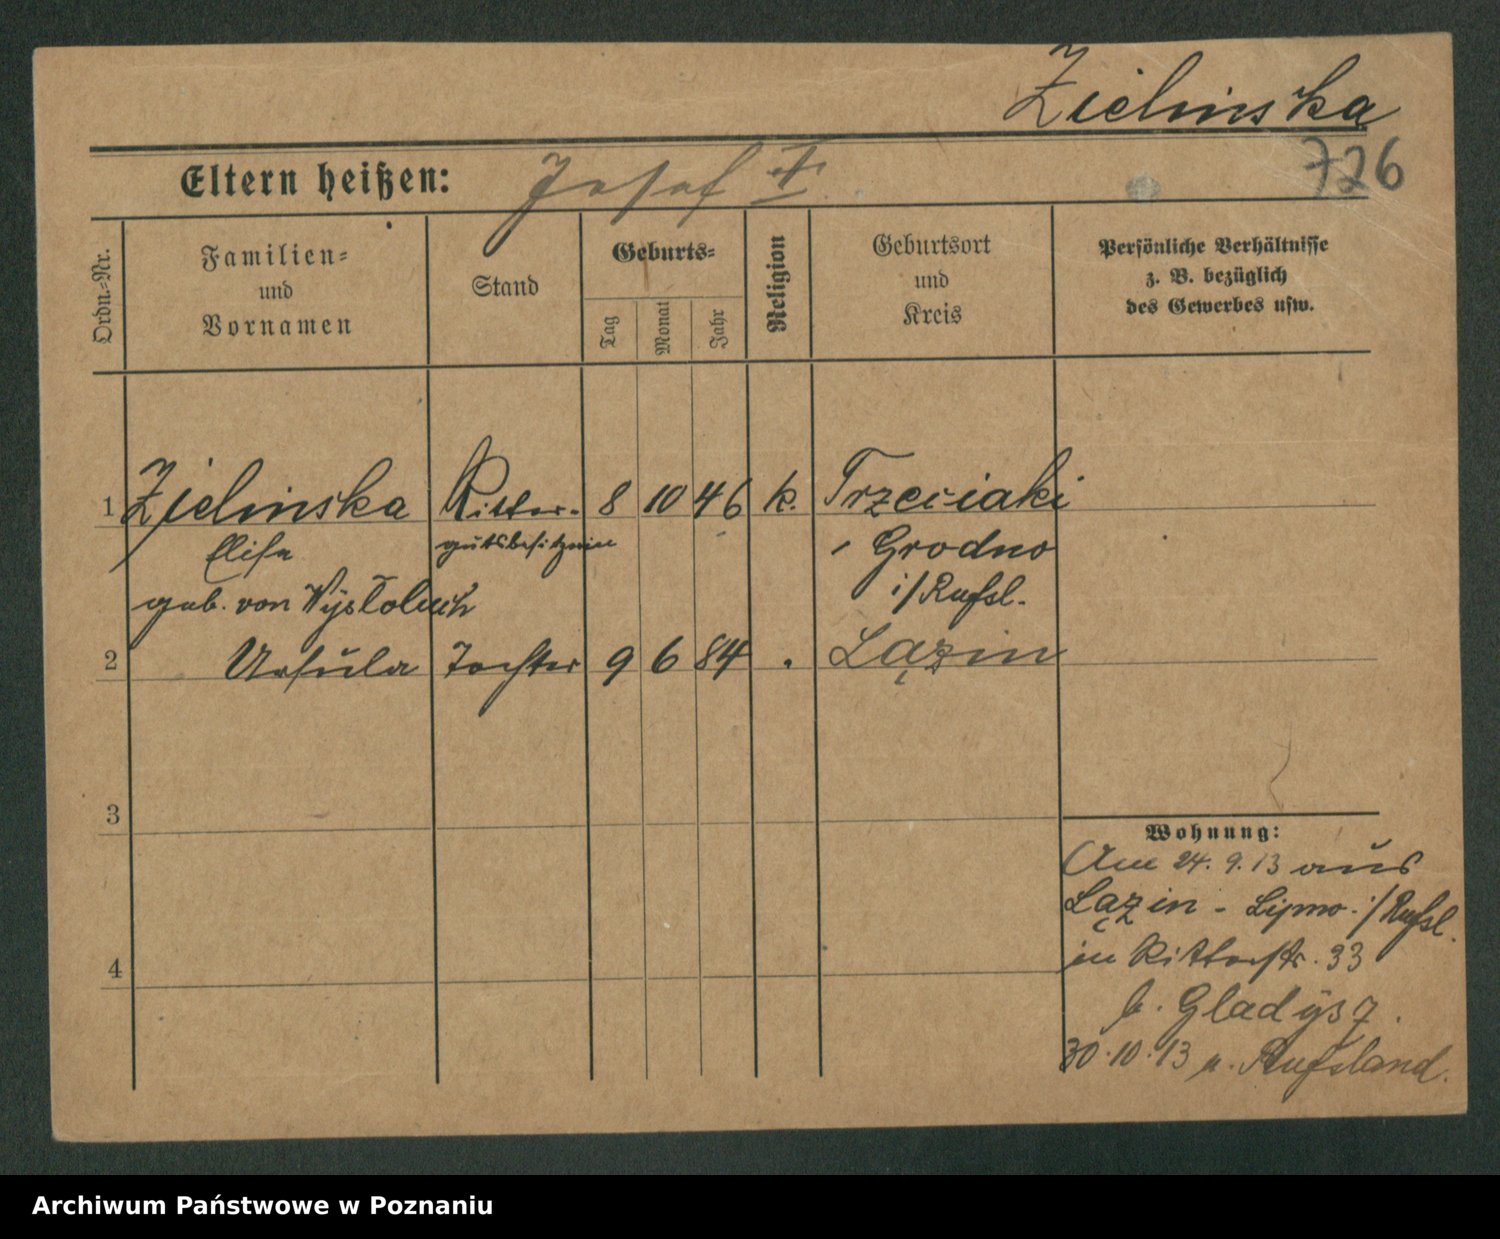 Zielinska
726
Eltern heißen: Josef I
Ordn.-Nr.
Familien-
und
Vornamen
Stand
Geburts-
Tag
Monat
Jahr
Religion
Geburtsort
und
Kreis
Persönliche Verhältnisse
z. B. bezüglich
des Gewerbes usw.
1 Zielinska Ritter- 8 10 46 k. Trzeciaki
Elisa gutsbesitzerin Grodno
geb. von i/Rußl.
2 Ursula Tochter 9 6 84 . Łązin
3
4
Wohnung:
Am 24. 9. 13 aus
Łązin - Lipno i/Rußl.
in Ritterstr. 33
b. Gladysz.
30.10.13 n. Rußland.
Archiwum Państwowe w Poznaniu